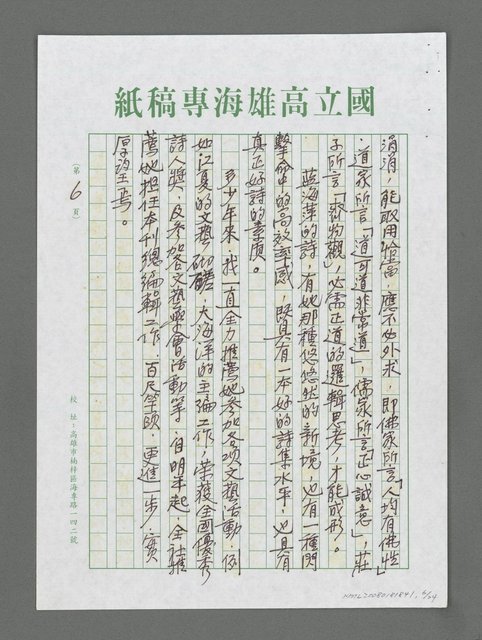 國立高雄海專稿紙
涓涓，能取用恰當，應不必外求，即佛家所言「人均有佛性」
，道家所言「道可道非常道」，儒家所言「正心誠意」，莊
子所言「齊物觀」，必需正道的邏輯思考，才能成形。
藍海萍的詩，有她那種悠悠然的新境，也有一種閃
擊命中的高效率感，既具有一本好的詩集水平，也具有
真正好詩的素質。
多少年來，我一直全力推薦她參加各項文藝活動，例
如江夏的文藝，大海洋的主編工作，榮獲全國優秀
詩人獎，及參加各文藝學會活動等，自明年起，全社推
薦她担任本刊總編輯工作，百尺竿頭，更進一步，實
厚望焉。
(第 6 頁)
校 址：高雄市楠梓區海專路一四二號